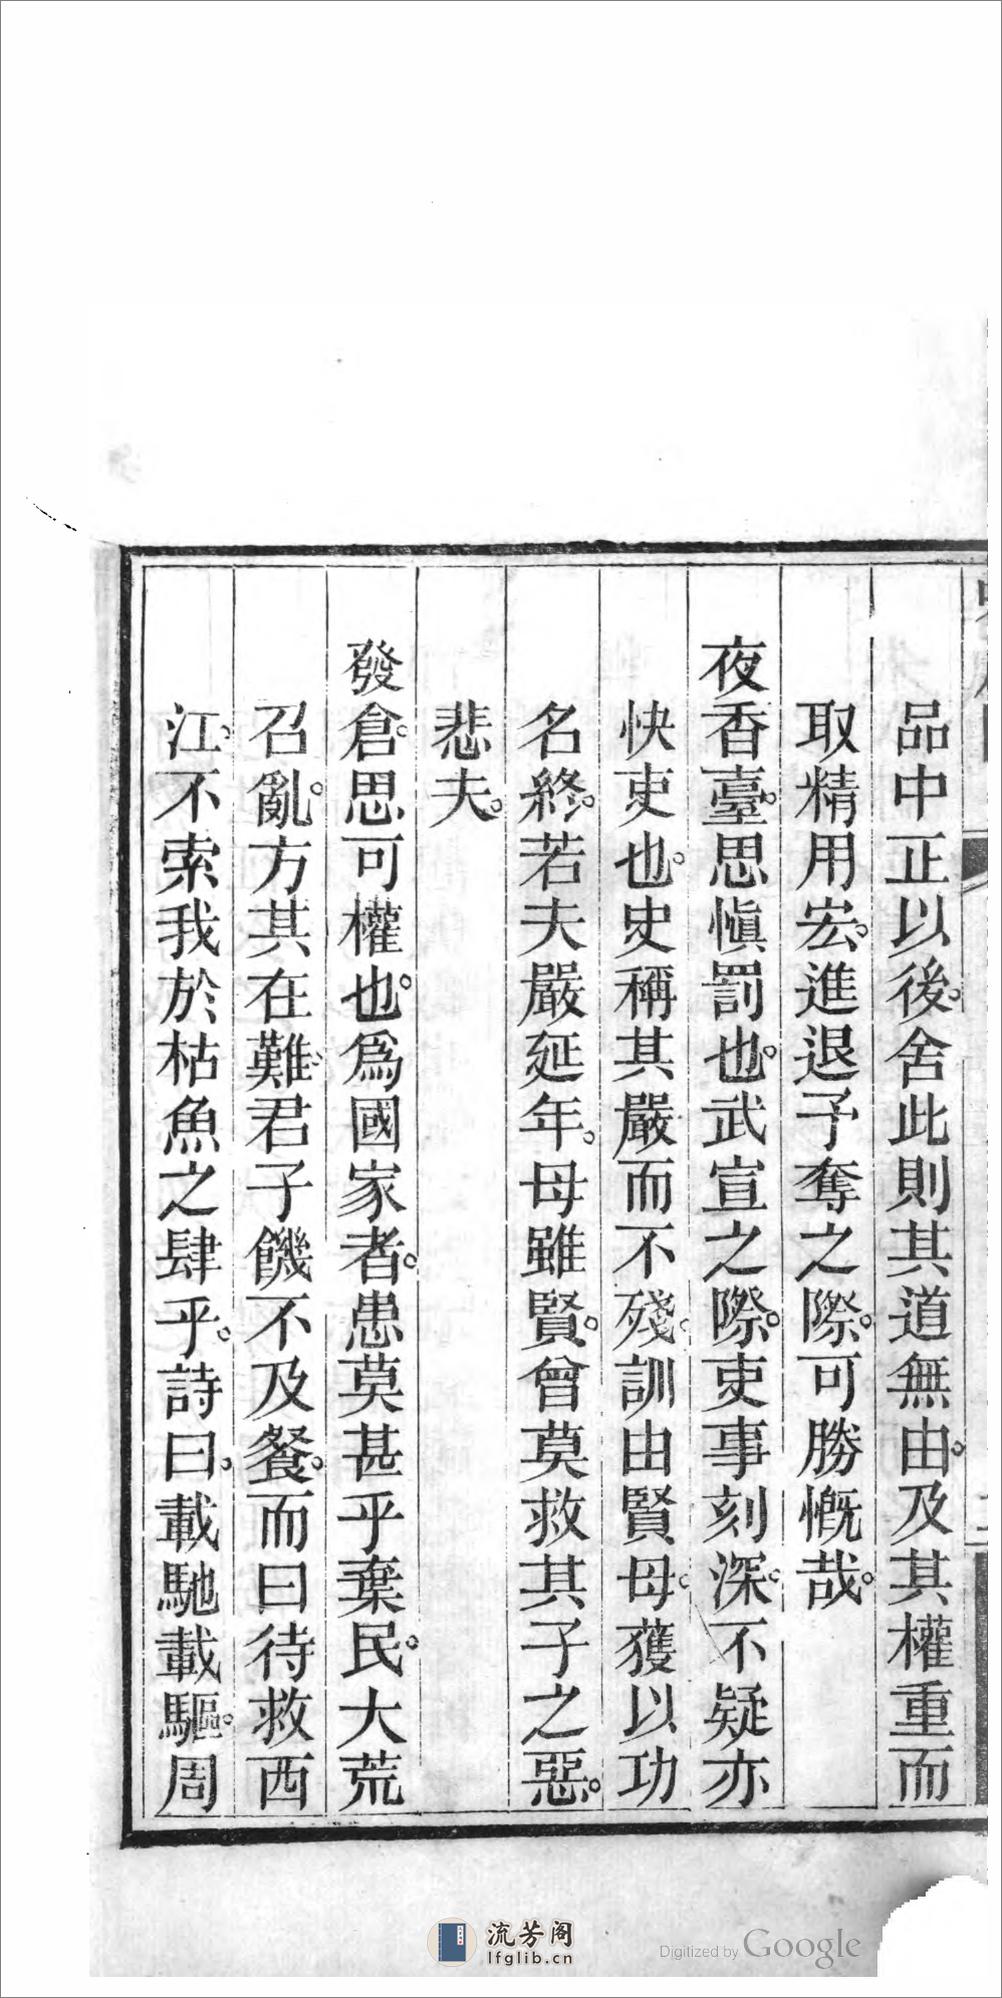 品中正以後。舍此則其道無由。及其權重而
取精用宏。進退予奪之際。可勝慨哉。
夜香臺。思愼罰也。武宣之際。吏事刻深。不疑亦
快吏也。史稱其嚴而不殘。訓由賢母。獲以功
名終。若夫嚴延年。母雖賢。曾莫救其子之惡。
悲夫。
發倉。思可權也。爲國家者。患莫甚乎棄民。大荒
召亂。方其在難。君子饑不及餐。而曰待救西
江。不索我於枯魚之肆乎。詩曰。載馳載驅。周
流芳阁
lfglib.cn
Digitized by Google